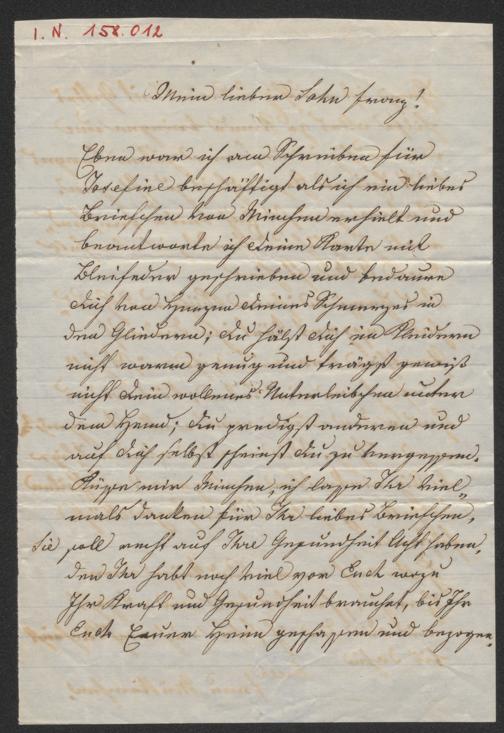 I. N. 158.012
Mein lieber Sohn Franz!
Eben war ich am Schreiben für
Josefine beschäftigt als ich ein liebes
Briefchen von Minchen erhielt und
beantworte ich deine Karte mit
Bleifeder geschrieben und bedaure
dich von Herzen deines Schmerzes in
den Gliedern; du hälst dich in Kleidern
nicht warm genug und trägst gewiß
nicht dein wollenes Unterleibchen unter
dem Hemd; du predigst anderen und
auf dich selbst scheinst du zu vergessen.
Küsse mir Minchen, ich lasse Ihr viel„
mals danken für Ihr liebes Briefchen,
Sie soll recht auf Ihre Gesundheit Acht haben,
den Ihr habt noch viel vor Euch wozu
Ihr Kraft und Gesundheit brauchet, bis Ihr
Euch Eeuer Heim geschaffen und bezogen.